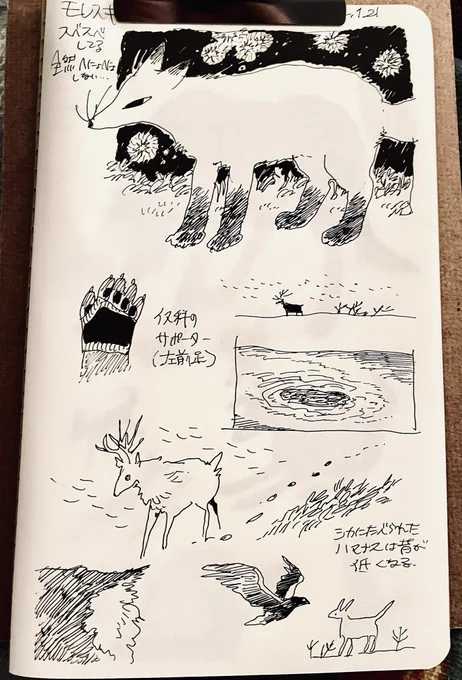 モレスキ
スベスベ
してる
全然 へにょへにょ
しない…
.1.21
イヌ科の
サポーター
(左前足)
シカにたべられた
ハマナスは背が
低くなる.